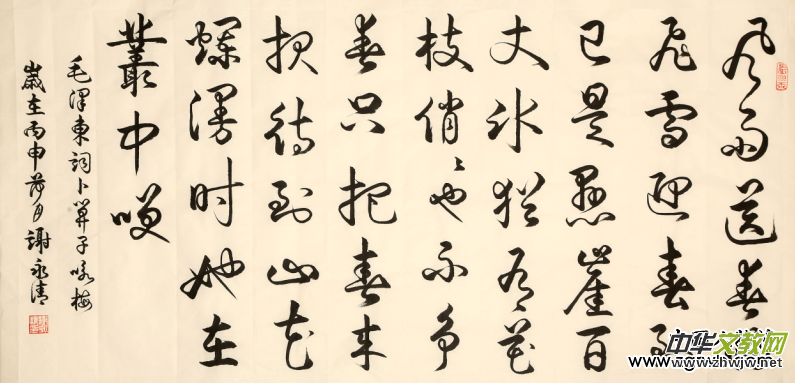 风雨送春
飞雪迎春到
已是悬崖百
丈冰犹有花
枝俏〻也不争
春只把春来
报待到山花
烂漫时她在
叢中咲
毛澤東詞卜算子咏梅
歲在丙申荷月謝永清
中华文教网